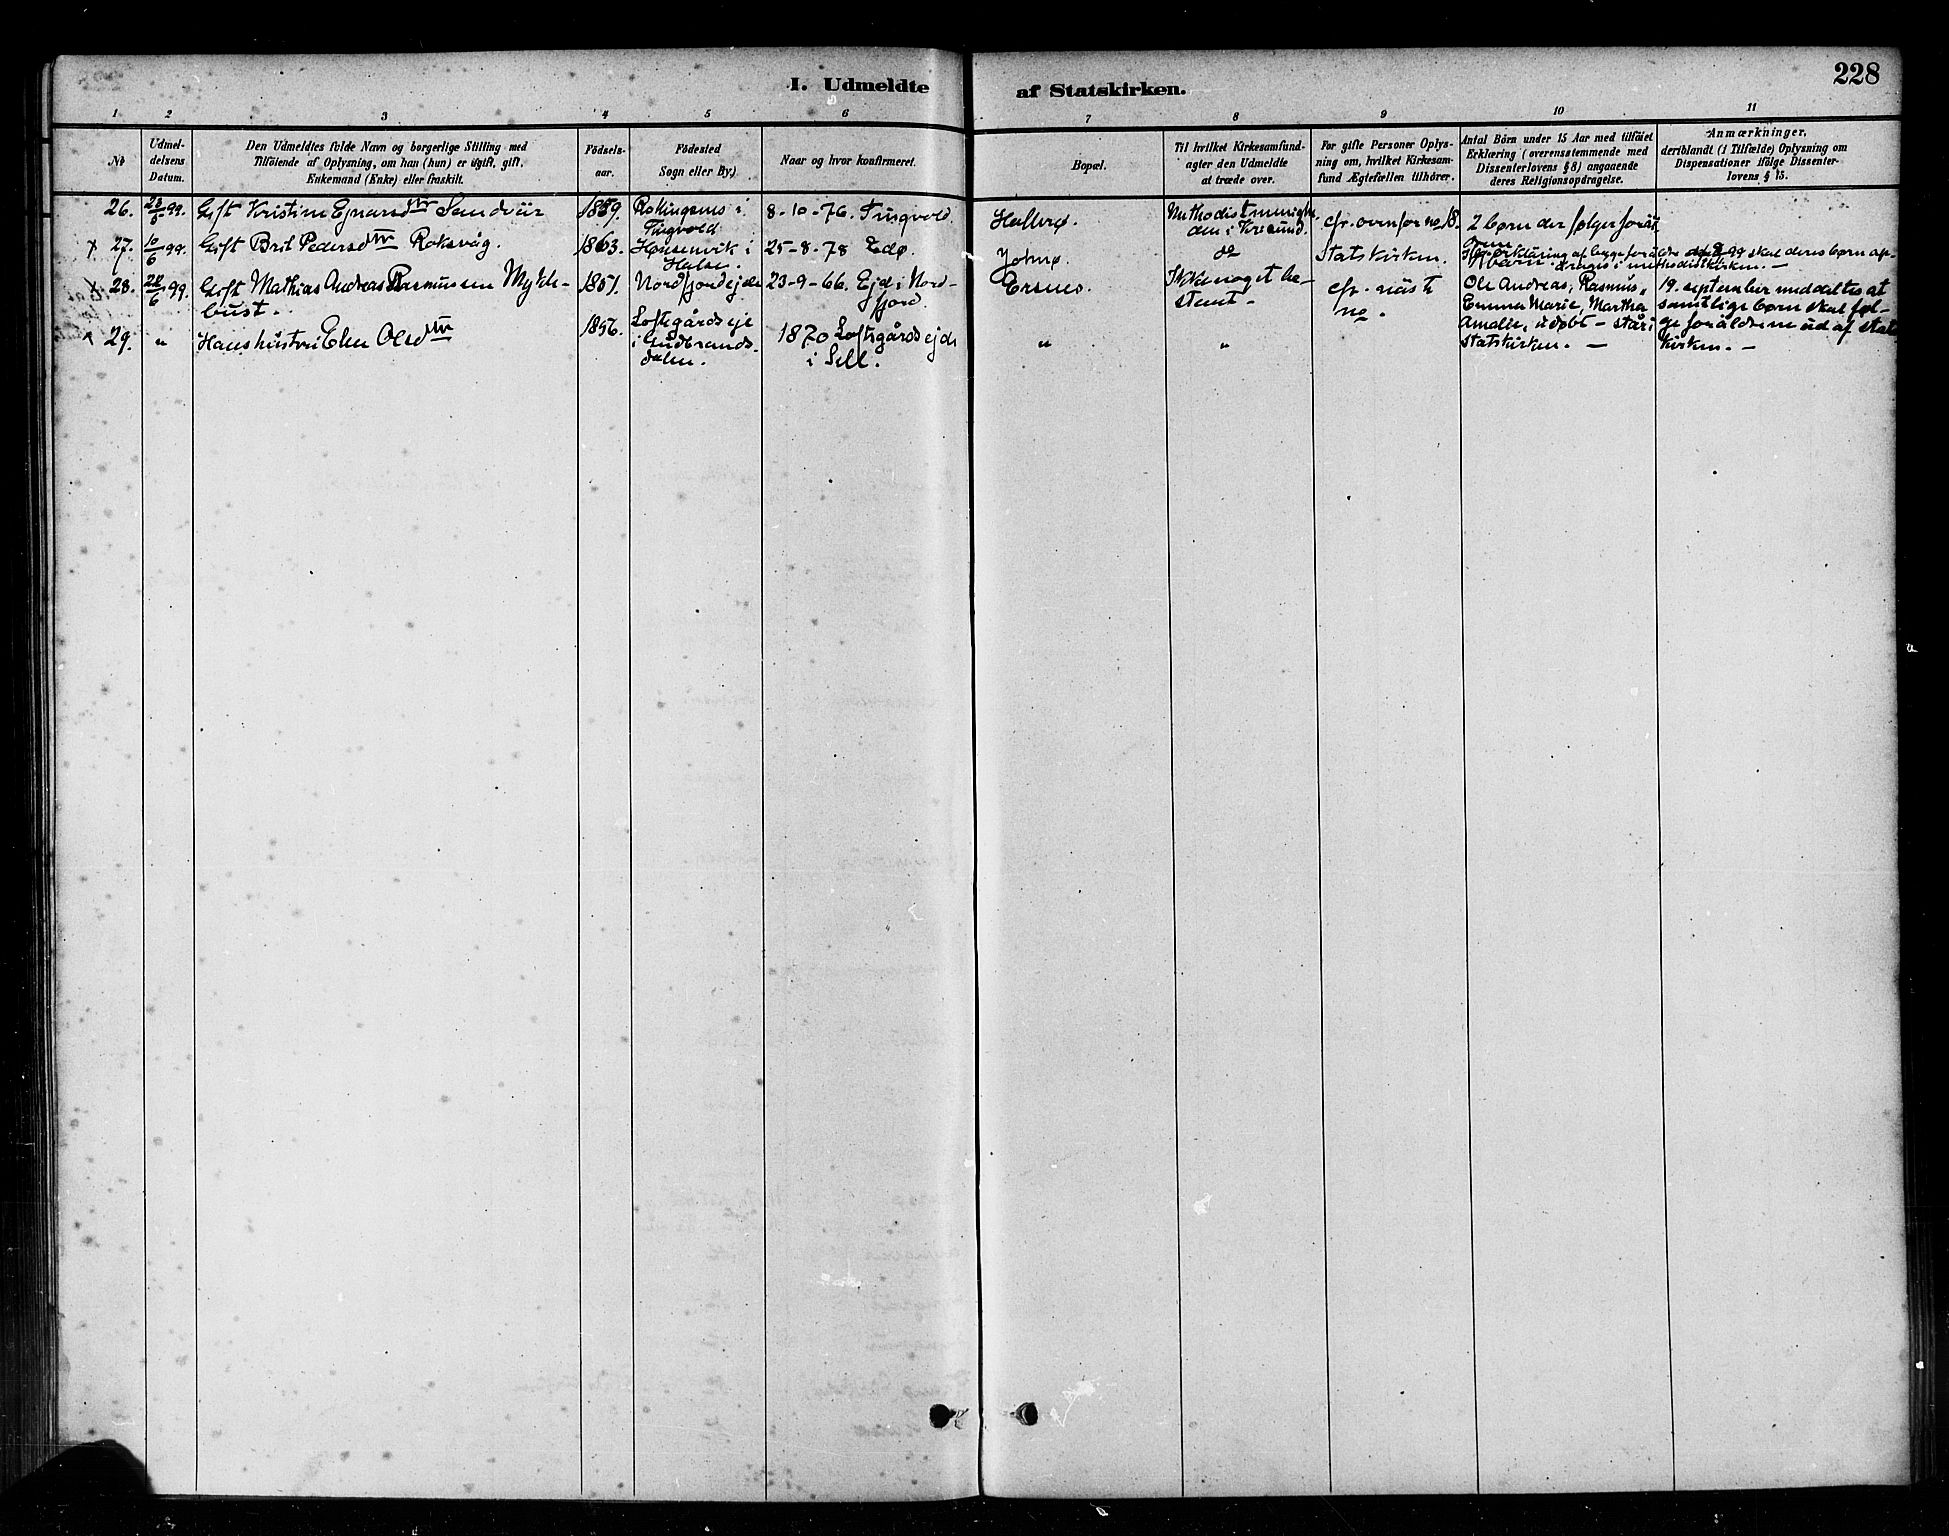 I. Udmeldte af Statskirken.
228
1 2 3 4 5 6 7 8 9 10 11
No
Udmel-
delsens
Datum.
Den Udmeldtes fulde Navn og borgerlige Stilling med
Tilføiende af Oplysning, om han (hun) er ugift, gift,
Enkemand (Enke) eller fraskilt.
Fødsels-
aar.
Fødested
Sogn eller By.)
Naar og hvor konfirmeret.
Bopæl.
Til hvilket Kirkesamfund-
agter den Udmeldte
at træde over.
For gifte Personer Oplys-
ning om, hvilket Kirkesam-
fund Ægtefællen tilhører.
Antal Børn under 15 Aar med tilføiet
Erklæring (overensstemmende med
Dissenterlovens § 8) angaaende
deres Religionsopdragelse.
Anmærkninger,
deriblandt (i Tilfælde) Oplysning om
Dispensationer ifølge Dissenter-
lovens § 15.
26.
23/5 99.
Gift Kristine Ejnarsdtr Sandvik
1859.
Rokingsnes i
Tingvold
8-10-76. Tingvold
Hallerø.
Methodistmenighe
den i Krsund.
cfr. ovenfor no 18.
2 børn der følger foräl
drene
x 27.
10/6 99.
Gift Brit Pedersdtr Roksvåg.
1863.
Henenvik i
Halse.
25-8-78 Edø.
Jobnø.
do
Statskirken.
børn.
erkläring af begge foräldre 99 skal deres børn op-
drages i methodistkirken. —
x 28.
22/6 99.
Gift Mathias Andreas Rasmussen Mykle-
bust.
1851.
Nordfjordejde
23-9-66. Ejd i Nord-
fjord.
Ersnes.
Ikke noget be-
stemt -
cfr. näste
no.
Ole Andreas, Rasmus,
Emma Marie, Marthea
Amalie, udøbt - står i
statskirken. —
19. september meddeltes at
samtlige børn skal føl-
ge foräldrene ud af stats
kirken. —
x 29.
"
Hans hustru Elen Olsdtr
1856.
Loftsgårds eje
i Gudbrands-
dalen.
1870 Loftsgårds ejde
i Sell.
"
"